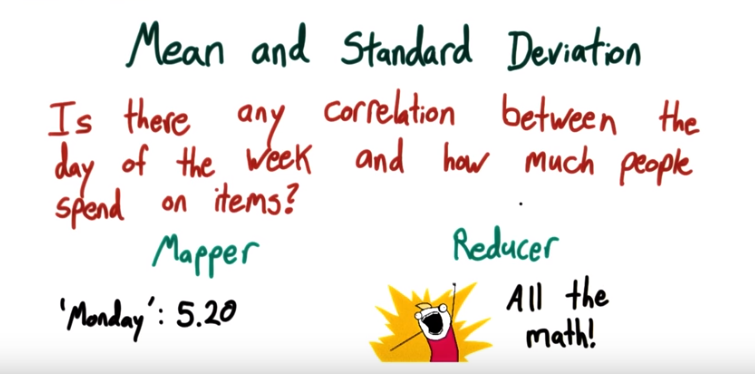 Mean and Standard Deviation
Is there any correlation between the
day of the week and how much people
spend on items?
Mapper
'Monday': 5.20
Reducer
All the
math!